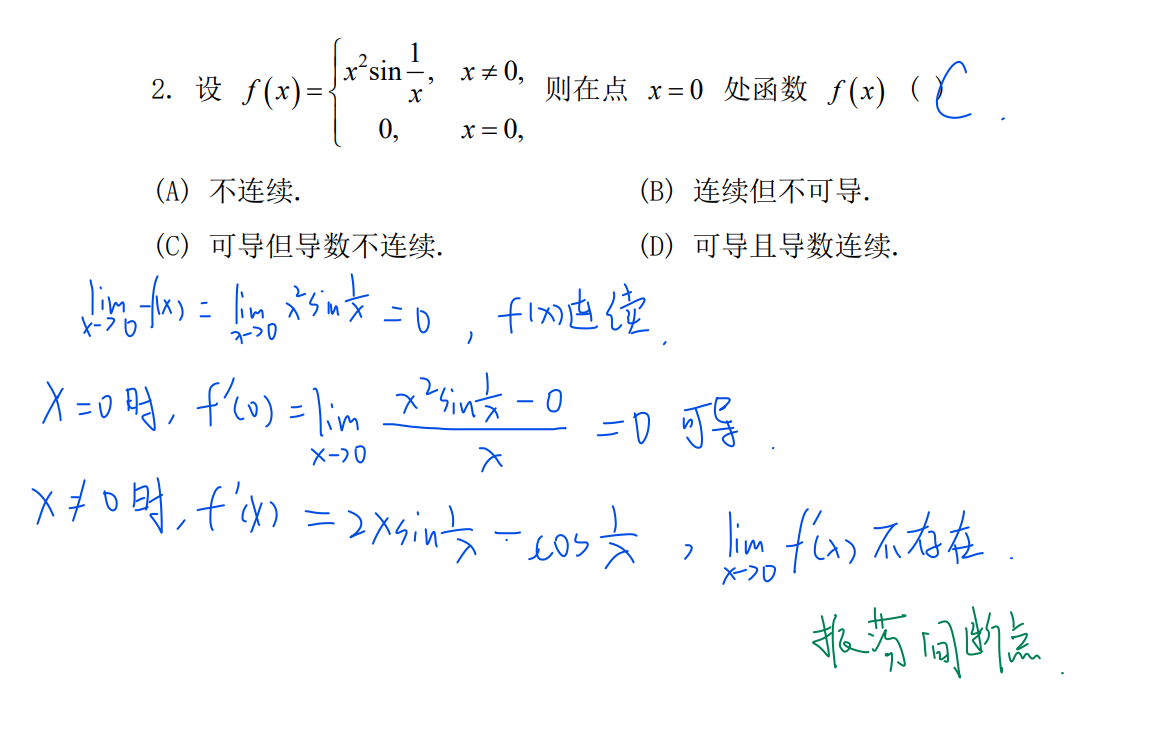 2. 设 f(x)={ x²sin 1/x, x≠0, 0, x=0, 则在点 x=0 处函数 f(x) ( ) C.
(A) 不连续. (B) 连续但不可导.
(C) 可导但导数不连续. (D) 可导且导数连续.
lim x→0 f(x) = lim x→0 x²sin 1/x = 0 , f(x)连续.
X=0时, f'(0) = lim x→0 (x²sin 1/x - 0)/x = 0 可导.
X≠0时, f'(x) = 2xsin 1/x - cos 1/x , lim x→0 f'(x) 不存在.
振荡间断点.